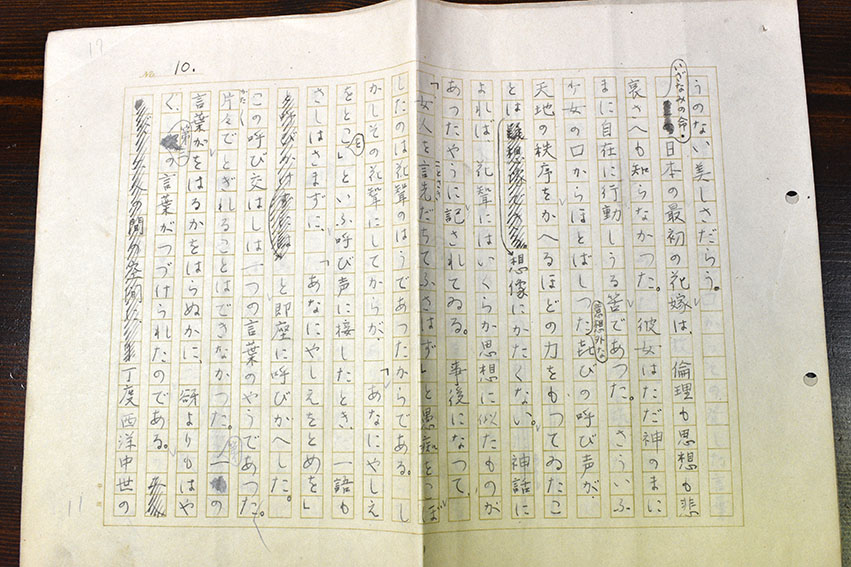 17
No. 10.
うのない美しさだらう。
いざなみの命、日本の最初の花嫁は、倫理も思想も悲
哀さへも知らなかつた。彼女はただ神のまに
まに自在に行動しうる筈であつた。さういふ
少女の口からほとばしつた意想外な喜びの呼び声が、
天地の秩序をかへるほどの力をもつてゐたこ
とは想像にかたくない。神話に
よれば、花聟にはいくらか思想に似たものが
あつたやうに記されてゐる。事後になつて、
「女人を言先だちてふさはず」と愚痴をこぼ
したのは花聟のはうであつたからである。し
かしその花聟にしてからが、「あなにやしえ
をとこを」といふ呼び声に接したとき、一語も
さしはさまずに、「あなにやしえをとめを」
と即座に呼びかへした。
この呼び交はしは一つの言葉のやうであつた。
片々でとぎれることはできなかつた。一の
言葉がをはるかをはらぬかに、谺よりもはや
く、第の言葉がつづけられたのである。
丁度西洋中世の